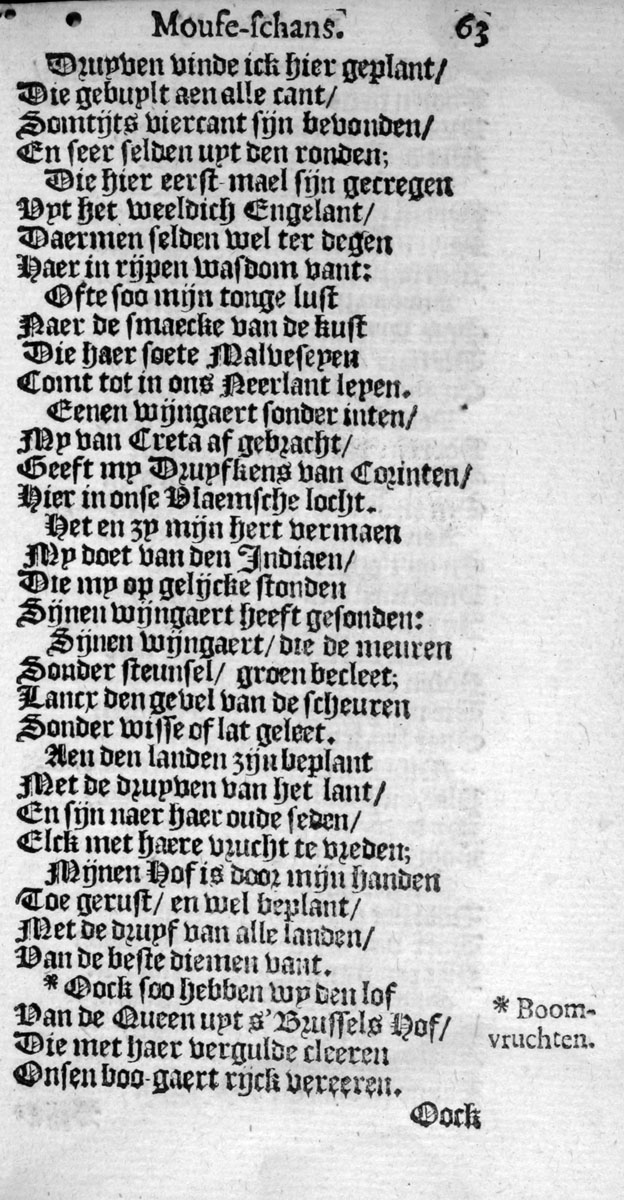 Moufe-schans. 63
Druyven vinde ick hier geplant/
Die gebuylt aen alle cant/
Somtijts viercant sijn bevonden/
En seer selden uyt den ronden;
Die hier eerst-mael sijn gecregen
Uyt het weeldich Engelant/
Daermen selden wel ter degen
Haer in rijpen wasdom vant:
Ofte soo mijn tonge lust
Naer de smaecke van de kust
Die haer soete Malveseyen
Comt tot in ons Neerlant leyen.
Eenen wijngaert sonder inten/
My van Creta af gebracht/
Geeft my Druyfkens van Corinten/
Hier in onse Vlaemsche locht.
Het en zy mijn hert vermaen
My doet van den Indiaen/
Die my op gelijcke stonden
Sijnen wijngaert heeft gesonden:
Sijnen wijngaert/ die de meuren
Sonder steunsel/ groen becleet;
Lancx den gevel van de scheuren
Sonder wisse of lat geleet.
Aen den landen zijn beplant
Met de druyven van het lant/
En sijn naer haer oude seden/
Elck met haere vrucht te vreden;
Mijnen Hof is door mijn handen
Toe gerust/ en wel beplant/
Met de druyf van alle landen/
Van de beste diemen vant.
* Oock soo hebben wy den lof
Van de Queen uyt s'Brussels Hof/
Die met haer vergulde cleeren
Onsen boo-gaert rijck vereeren.
* Boom-
vruchten.
Oock